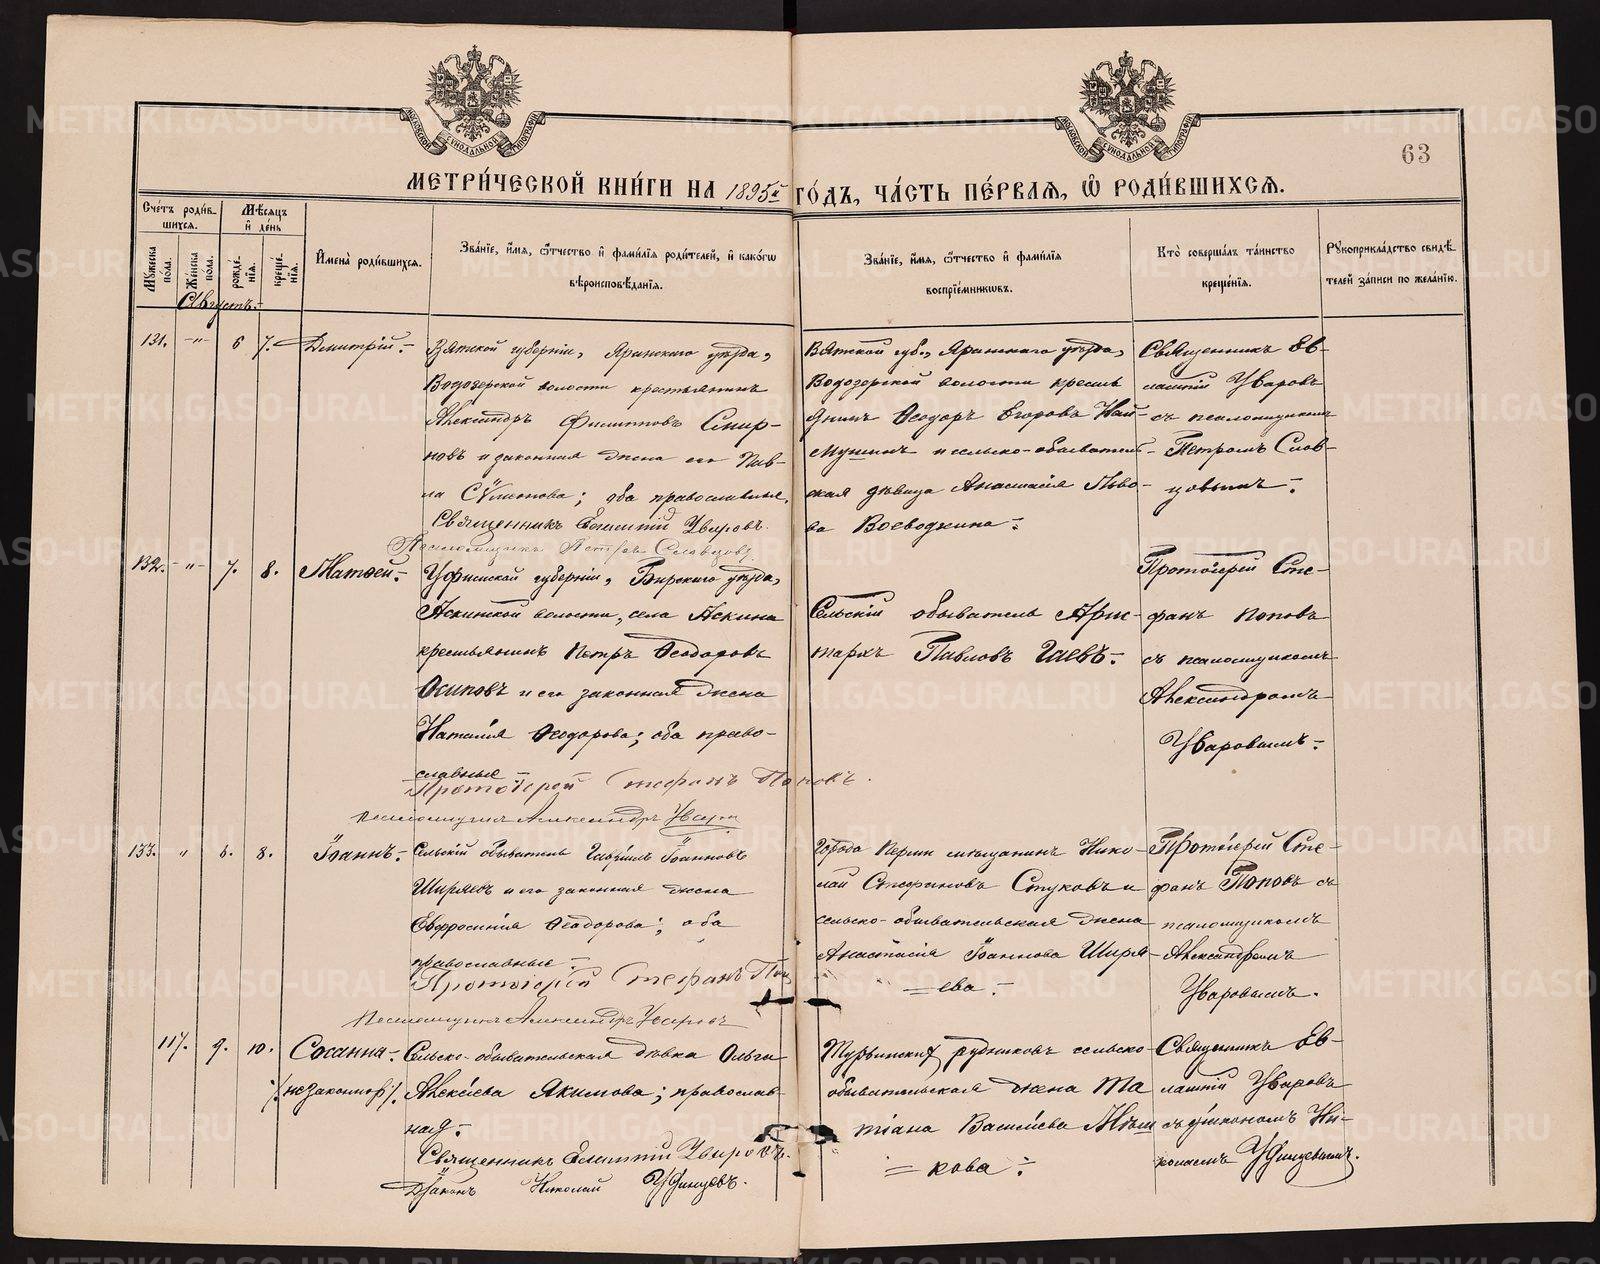 МЕТРИ́ЧЕСКОЙ КНИ́ГИ НА 1895й ГО́ДЪ, ЧА́СТЬ ПЕ́РВАЯ, Ѽ РОДИ́ВШИХСЯ.
63
Сче́тъ роди́в-
шихся.
Мѣ́сяцъ
и҆ де́нь
Му́жеска по́ла.
Же́нска по́ла.
рожде́нїя.
креще́нїя.
И҆мена̀ роди́вшихся.
Зва́нїе, и҆́мя, ѻ҆́тчество и҆ фами́лїя роди́телей, и҆ како́гѡ
вѣроисповѣ́данїя.
Зва́нїе, и҆́мя, ѻ҆́тчество и҆ фами́лїя
воспрїе́мникѡвъ.
Кто̀ соверша́лъ та́инство
креще́нїя.
Рꙋкоприкла́дство свидѣ́-
телей за́писи по жела́нїю.
Августъ.-
131. -"- 6 7. Дмитрій.-
Вятской губерніи, Яранскаго уѣзда,
Водозерской волости крестьянинъ
Александръ Филипповъ Смир-
новъ и законная жена его Пав-
ла Сѵмеонова; оба православные,
Священникъ Евлампій Уваровъ.
Псаломщикъ Петръ Словцовъ
Вятской губ., Яранскаго уѣзда,
Водозерской волости кресть
янинъ Ѳеодоръ Егоровъ Най-
мушинъ и сельско-обыватель-
ская дѣвица Анастасія Льво-
ва Воеводкина.-
Священникъ Ев-
лампій Уваровъ
съ псаломщикомъ
Петромъ Слов-
цовымъ.-
132.- -"- 7. 8. Матѳей.-
Уфимской губерніи, Бирскаго уѣзда,
Аскинской волости, села Аскина
крестьянинъ Петръ Ѳеодоровъ
Осиповъ и его законная жена
Наталія Ѳеодорова; оба право-
славные.-
Протоіерей Стефанъ Поповъ.
псаломщикъ Александръ Уваровъ
Сельскій обыватель Арис-
тархъ Павловъ Гаевъ.-
Протоіерей Сте-
фанъ Поповъ
съ псаломщикомъ
Александромъ
Уваровымъ.-
133. " 6. 8. Іоаннъ.-
Сельскій обыватель Гавріилъ Іоанновъ
Ширяевъ и его законная жена
Евфросинія Ѳеодорова; оба
православные.-
Протоіерей Стефанъ Поп
Псаломщикъ Александръ Уваровъ
Города Перми мѣщанинъ Нико-
лай Стефановъ Стуковъ и
сельско-обывательская жена
Анастасія Іоаннова Ширя-
=ева.-
Протоіерей Сте-
фанъ Поповъ съ
псаломщикомъ
Александромъ
Уваровымъ.
117. 9. 10. Сосанна.-
/:незаконнор:/.
Сельско-обывательская дѣвка Ольга
Алексіева Якимова; православ-
ная.-
Священникъ Евлампій Уваровъ.
Діаконъ Николай Удинцевъ.
Турьинскихъ рудниковъ сельско-
обывательская жена Та
тіана Василіева Мѣш
=кова.-
Священникъ Ев-
лампій Уваровъ
съ діакономъ Ни-
колаемъ Удинцевымъ.
METRIKI.GASO-URAL.RU